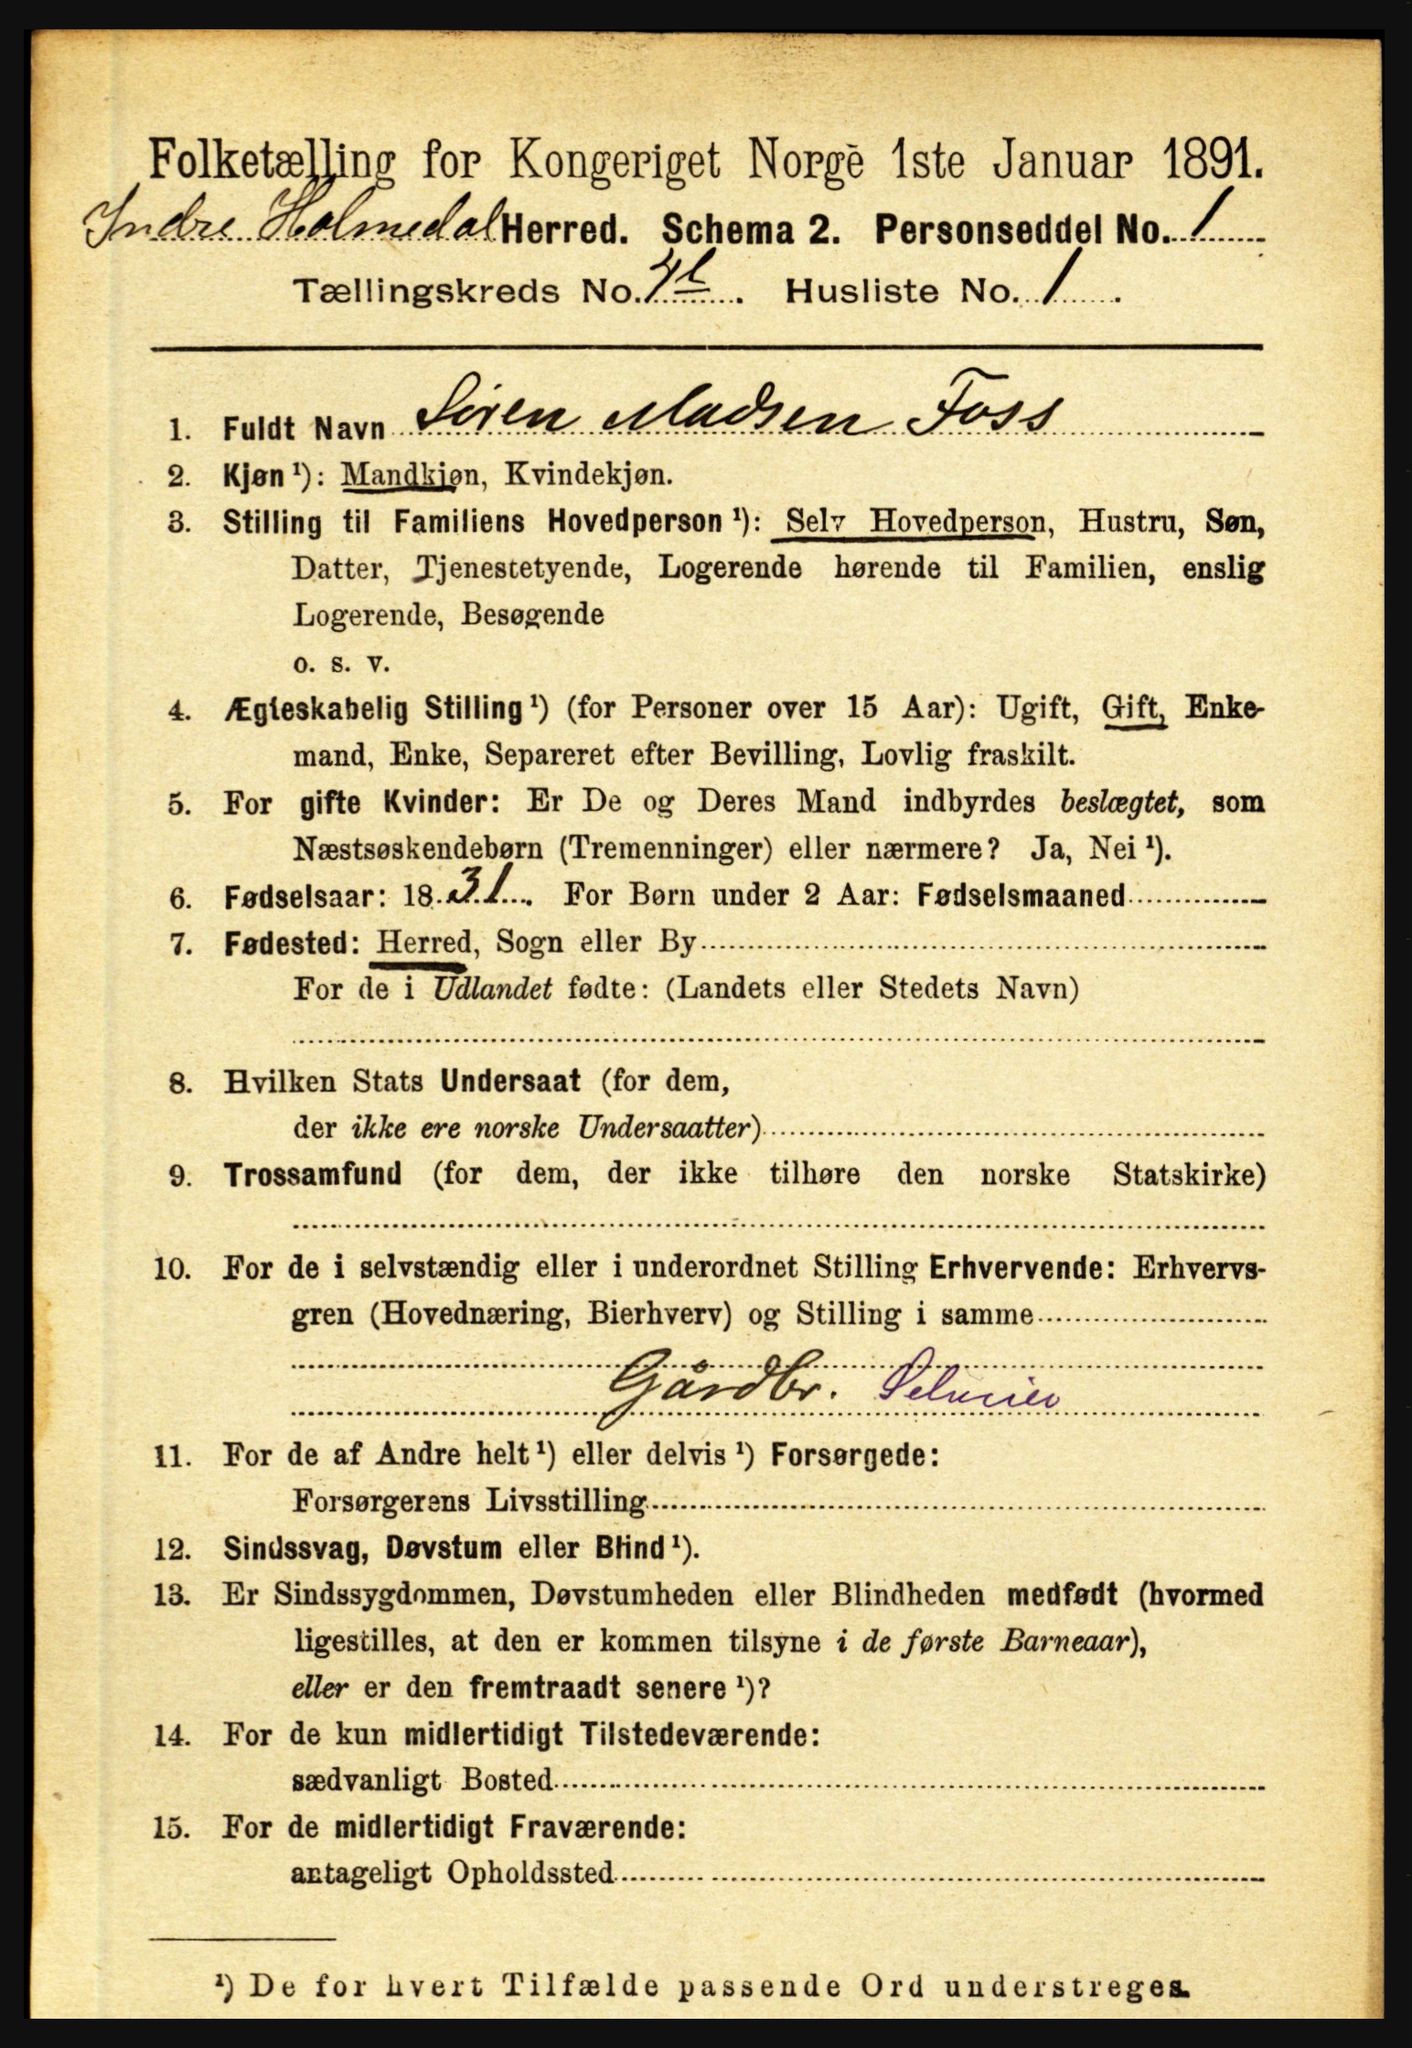 Folketælling for Kongeriget Norge 1ste Januar 1891.
Indre Holmedal Herred. Schema 2. Personseddel No. 1
Tællingskreds No. Husliste No. 1.
1. Fuldt Navn Søren Madsen Foss
2. Kjøn ¹): Mandkjøn, Kvindekjøn.
3. Stilling til Familiens Hovedperson ¹): Selv Hovedperson, Hustru, Søn,
Datter, Tjenestetyende, Logerende hørende til Familien, enslig
Logerende, Besøgende
o. s. v.
4. Ægteskabelig Stilling ¹) (for Personer over 15 Aar): Ugift, Gift, Enke-
mand, Enke, Separeret efter Bevilling, Lovlig fraskilt.
5. For gifte Kvinder: Er De og Deres Mand indbyrdes beslægtet, som
Næstsøskendebørn (Tremenninger) eller nærmere? Ja, Nei ¹).
6. Fødselsaar: 1831. For Børn under 2 Aar: Fødselsmaaned
7. Fødested: Herred, Sogn eller By
For de i Udlandet fødte: (Landets eller Stedets Navn)
8. Hvilken Stats Undersaat (for dem,
der ikke ere norske Undersaatter)
9. Trossamfund (for dem, der ikke tilhøre den norske Statskirke)
10. For de i selvstændig eller i underordnet Stilling Erhvervende: Erhvervs-
gren (Hovednæring, Bierhverv) og Stilling i samme
Gårdbr. Selveier
11. For de af Andre helt ¹) eller delvis ¹) Forsørgede:
Forsørgerens Livsstilling
12. Sindssvag, Døvstum eller Blind ¹).
13. Er Sindssygdommen, Døvstumheden eller Blindheden medfødt (hvormed
ligestilles, at den er kommen tilsyne i de første Barneaar),
eller er den fremtraadt senere ¹)?
14. For de kun midlertidigt Tilstedeværende:
sædvanligt Bosted
15. For de midlertidigt Fraværende:
antageligt Opholdssted
¹) De for hvert Tilfælde passende Ord understreges.